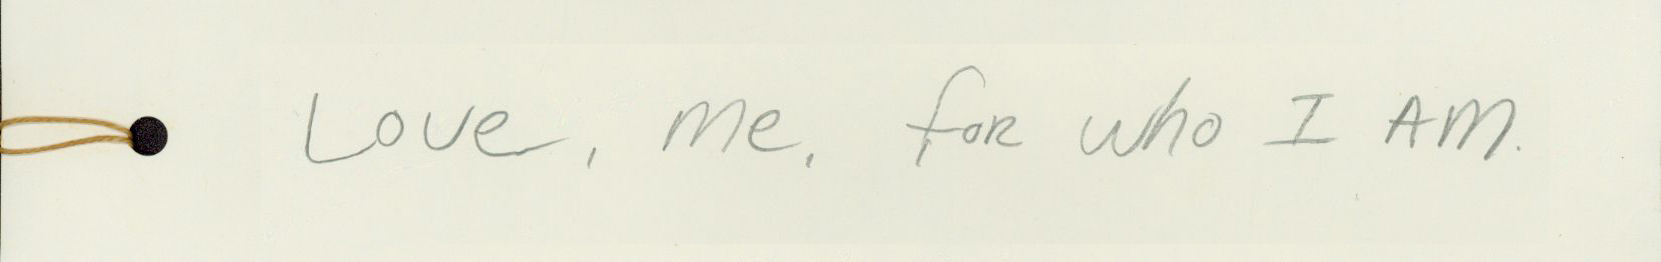 Love, me, for who I AM.